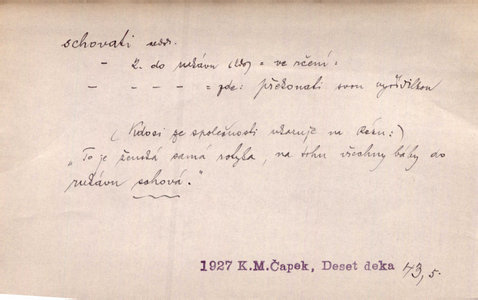 schovati
– 2. do rukávu (koho) = ve rčení:
– – – – = zde: překonati svou vyřídilkou
(Kdosi ze společnosti ukazuje na
"To je ženská samá rotyka, na tohu všechny báby do
rukávu schová."
1927 K.M.Čapek, Deset deka 73, 5.